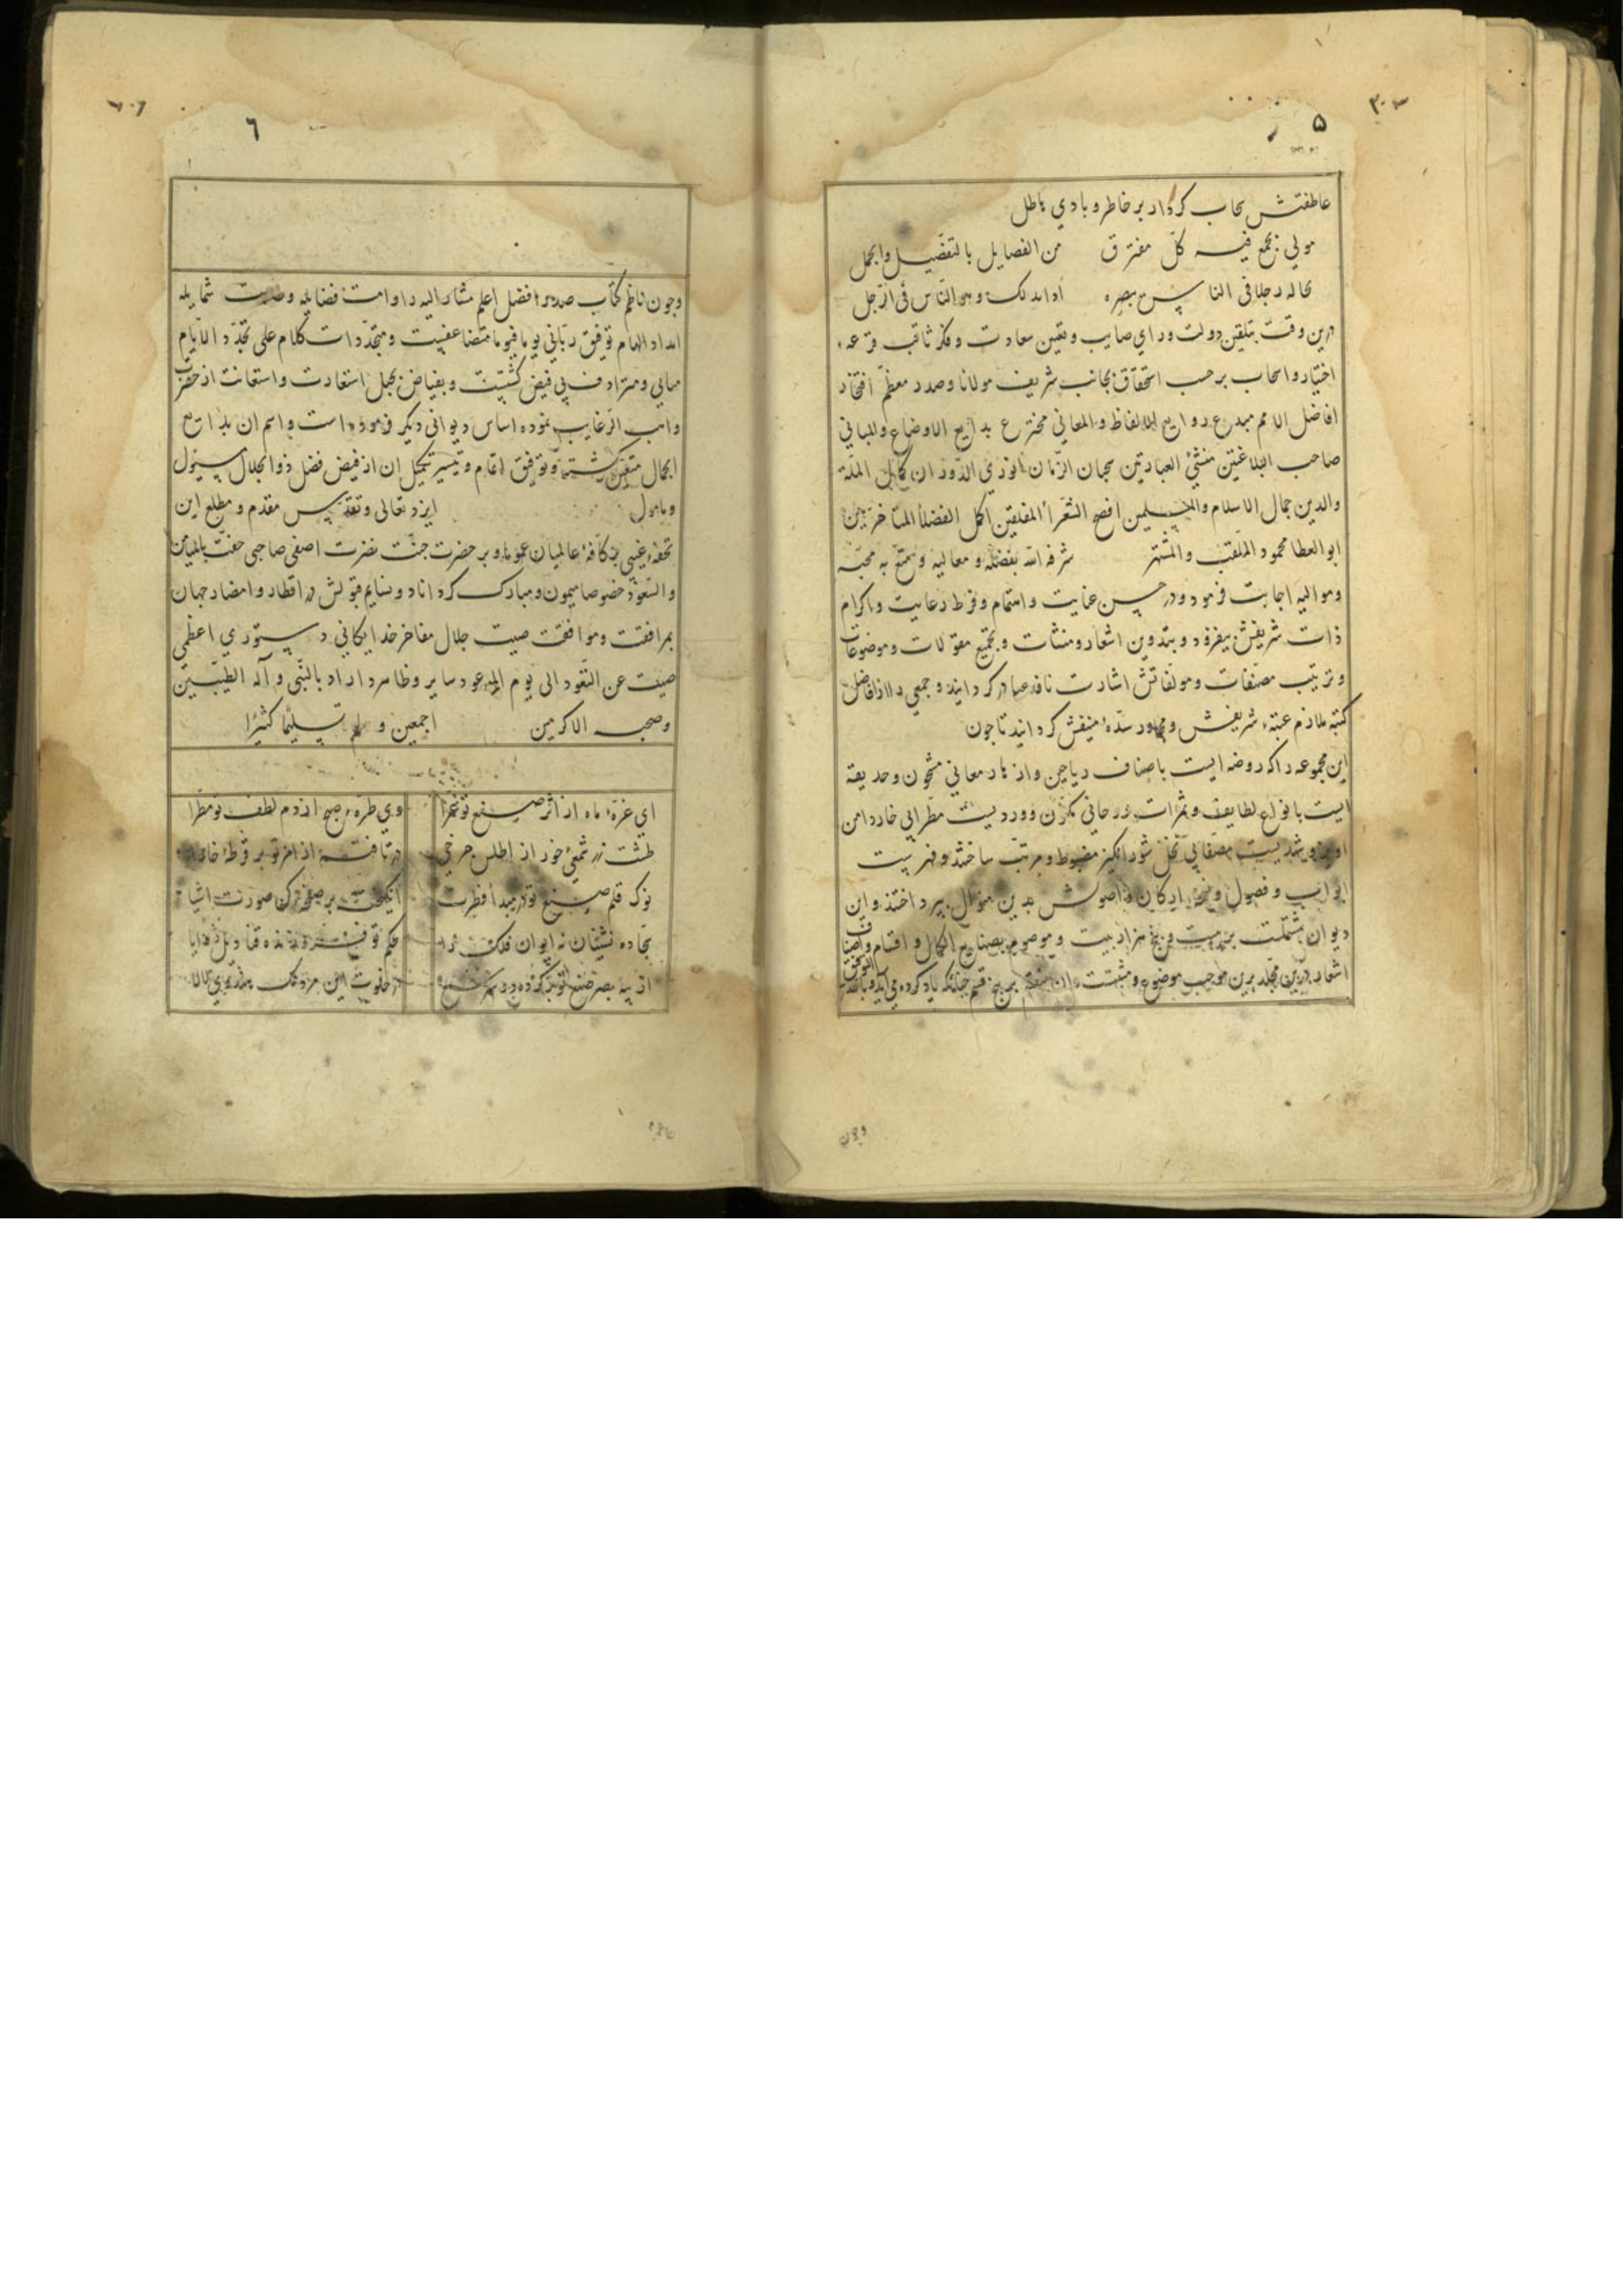 ۵
عاطفتش سحاب کردار بر خاطر و بادی هاطل
مولی تجمع فیه کل مفترق من الفضایل بالتفضیل والجمل
تخاله رجلا فی الناس تبصره او انه ملک وهو الناس فی الرجل
درین وقت بتلقین دولت و رای صایب و تعیین سعادت و فکر ثاقب قرعه
اختیار و اسحاب بر حسب استحقاق بجانب شریف مولانا و صدر معظم افتخار
افاضل الامم مبدع روایع الالفاظ والمعانی مخترع بدایع الاوضاع والمبانی
صاحب البلاغتین منشئ العبارتین سحبان الزمان انوری الدوران کمال الملة
والدین جمال الاسلام والمسلمین افصح الشعرأ المفلقین اکمل الفضلأ المتاخرین
ابو العطا محمود الملقب والمشتهر شرفه الله بفضله و معالیه و متع به محبه
وموالیه اجابت فرمود و در حسن عنایت و اهتمام و فرط رعایت و اکرام
ذات شریفش بیفزود و بتدوین اشعار و منشات و تجمیع مقولات و موضوعات
و ترتیب مصنفات و مولفاتش اشارت نافذ صادر کردانید و جمعی را از افاضل
کتبه ملازم عتبه شریفش و مجاور سده منیفش کردانید تا جون
این مجموعه را که روضه ایست باصناف ریاحین و ازهار معانی مشحون و حدیقه
ایست بانواع لطایف و ثمرات روحانی مخزن و وردیست مطرا بی خار دامن
شهدیست مصفا بی نحل شور انکیز مضبوط و مرتب ساختند و فهرست
ابواب و فصول و ارکان و اصولش بدین منوال بپرداختند و این
دیوان مشتملست بر بیست و پنج هزار بیت و موصوم بصنایع الکمال و اقسام و اصناف
اشعار درین مجلد برین موجب موضوع و مثبتست بر پنج قسم جنانکه یاد کرده می آید و بالله التوفیق
وجون
٦
وجون ناظم کتاب صدر افضل اعلم مشار الیه را دامت فضایله و طابت شمایله
امداد الهام توفیق ربانی یوما فیوما متضاعفیست و متجددات کلام علی تجدد الایام
متبانی و مترادف پی فیض کشتیت و بفیاض مجمل استعادت و استعانت از حضرت
واهب الرغایب نموده اساس دیوانی دیکر فرموده است و اسم ان بدایع
الجمال متعین کشته و توفیق اتمام و تیسیر تکمیل ان از فیض فضل ذو الجلال مسئول
و مامول ایزد تعالی و تقدس مقدم و مطلع این
تحفه غیبی بر کافه عالمیان عموما و بر حضرت جنت نضرت اصفی صاحبی حفت بالمیامن
والسعود خصوصا میمون و مبارک کرداناد و نسایم قبولش در اقطار و امصار جهان
بمرافقت و موافقت صیت جلال مفاخر خدایکانی دستوری اعظمی
صینت عن النفود الی یوم الموعود سایر و ظاهر داراد بالنبی و آله الطیبین
وصحبه الاکرمین اجمعین و سلم تسلیما کثیرا
ای غرهٔ ماه از اثر صنع تو غرا وی طرهٔ صبح از دم لطف تو مطرا
طشت زر شمعی خور از اطلس جرخی در تافته از امر تو بر قرطهٔ خارا
نوک قلم صنع تو در مبدأ فطرت انکیخته بر صفحه کن صورت اشیا
سجاده نشینان نه ایوان فلک را حکم تو فروزنده قنادیل زوایا
از پنبه بصر صنع تو در خلوت این مردمک هندوی لالا